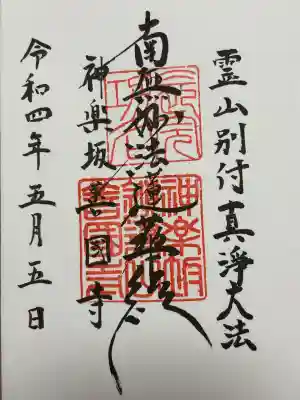 霊山別付真淨大法
南無妙法蓮華経
神楽坂善國寺
令和四年五月五日